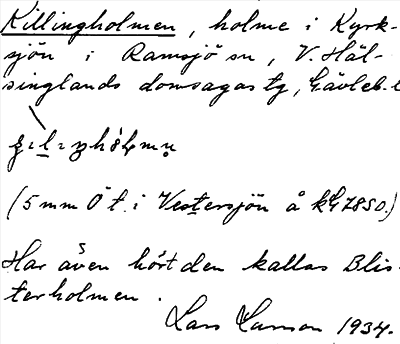 Killingholmen, holme i Kyrk-
sjön i Ramsjö sn, V. Häl-
singlands domsagas tg, Gävleb. l
(5 mm Ö t. i Vestersjön å kG 7850.)
Har även hört den kallas Blis-
terholmen.
Lars Larson 1934.